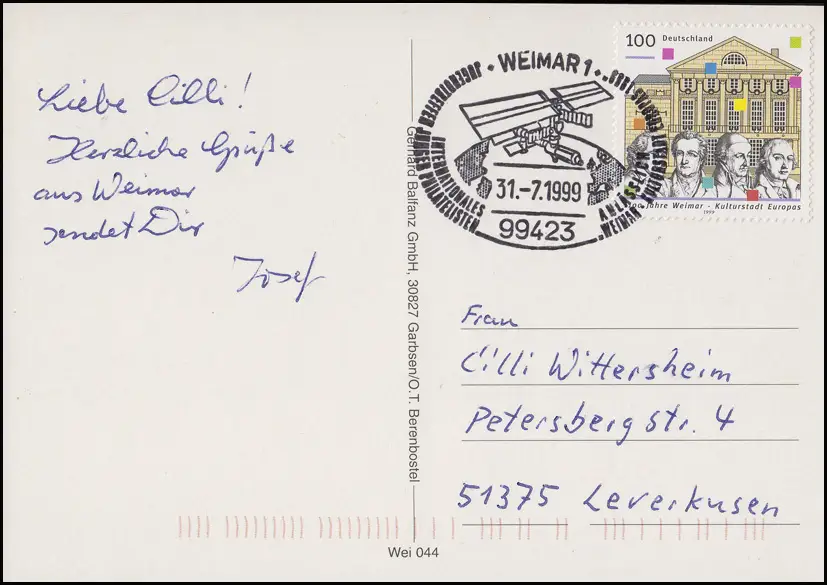 Liebe Cilli!
Herzliche Grüße
aus Weimar
sendet Dir
Josef
Gerhard Balfanz GmbH, 30827 Garbsen/O.T. Berenbostel
WEIMAR 1
INTERNATIONALES
JUNGER PHILATELISTEN
ANLÄSSLICH
"WEIMAR
31.-7.1999
99423
100 Deutschland
Jahre Weimar - Kulturstadt Europas
1999
Frau
Cilli Wittersheim
Petersberg str. 4
51375 Leverkusen
Wei 044